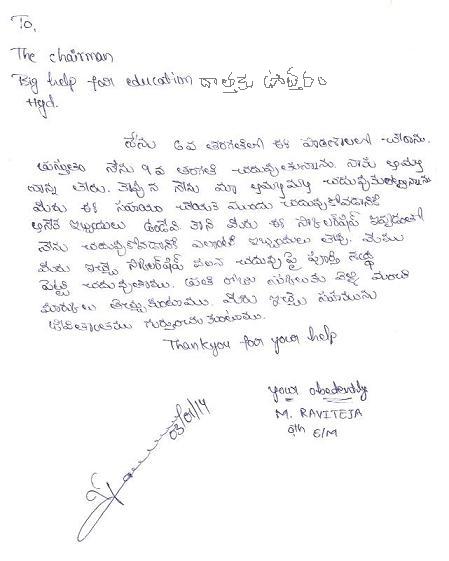 To,
The chairman
Big help for education దాతకు ఉత్తరం
Hyd.
నేను 6వ తరగతిలో ఈ పాఠశాలలో చేరాను.
ప్రస్తుతం నేను 9వ తరగతి చదువుతున్నాను. నాకు అమ్మ
నాన్న లేరు. నేను మా అమ్మమ్మ చదువుకుంటున్నాను
మీరు ఈ సహాయం చేయక ముందు చదువుకోవడానికి
అనేక ఇబ్బందులు ఉండేవి కానీ మీరు ఈ స్కాలర్‌షిప్ ఇవ్వడంతో
నేను చదువుకోవడానికి ఎలాంటి ఇబ్బందులు లేవు. మేము
మీరు ఇచ్చే స్కాలర్‌షిప్ వలన చదువుపై పూర్తి శ్రద్ధ
పెట్టి చదువుతాము. ప్రతి రోజు స్కూలుకు వెళ్లి మంచి
మార్కులు తెచ్చుకుంటాము. మీరు ఇచ్చే సహాయమును
జీవితాంతము గుర్తుంచుకుంటాము.
Thankyou for your help
your obediently
M. RAVITEJA
9th E/M
03/01/14